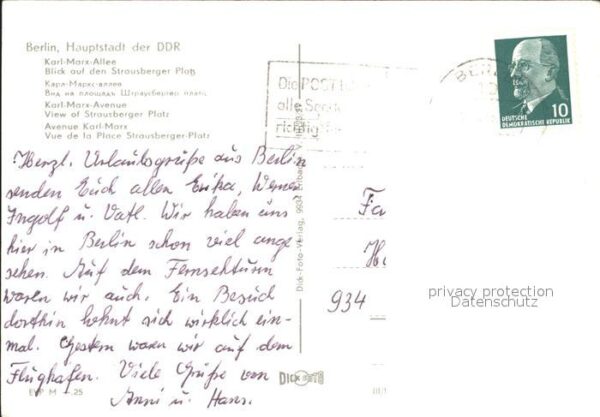 Berlin, Hauptstadt der DDR
Karl-Marx-Allee
Blick auf den Strausberger Platz
Карл-Маркс-аллее
Вид на площадь Штраусбергер платц
Karl-Marx-Avenue
View of Strausberger Platz
Avenue Karl-Marx
Vue de la Place Strausberger-Platz
Herzl. Urlaubsgrüße aus Berlin
senden Euch allen Erika, Werner
Ingolf u. Vati. Wir haben uns
hier in Berlin schon viel ange
sehen. Auf dem Fernsehturm
waren wir auch. Ein Besuch
dorthin lohnt sich wirklich ein-
mal. Gestern waren wir auf dem
Flughafen. Viele Grüße von
Anni u. Hans.
EVP M -.25
Dick-Foto-Verlag, 9934 Erlbach
DICK FOTO
Die POST
alle
richtig
BER
10
DEUTSCHE
DEMOKRATISCHE REPUBLIK
934
privacy protection
Datenschutz